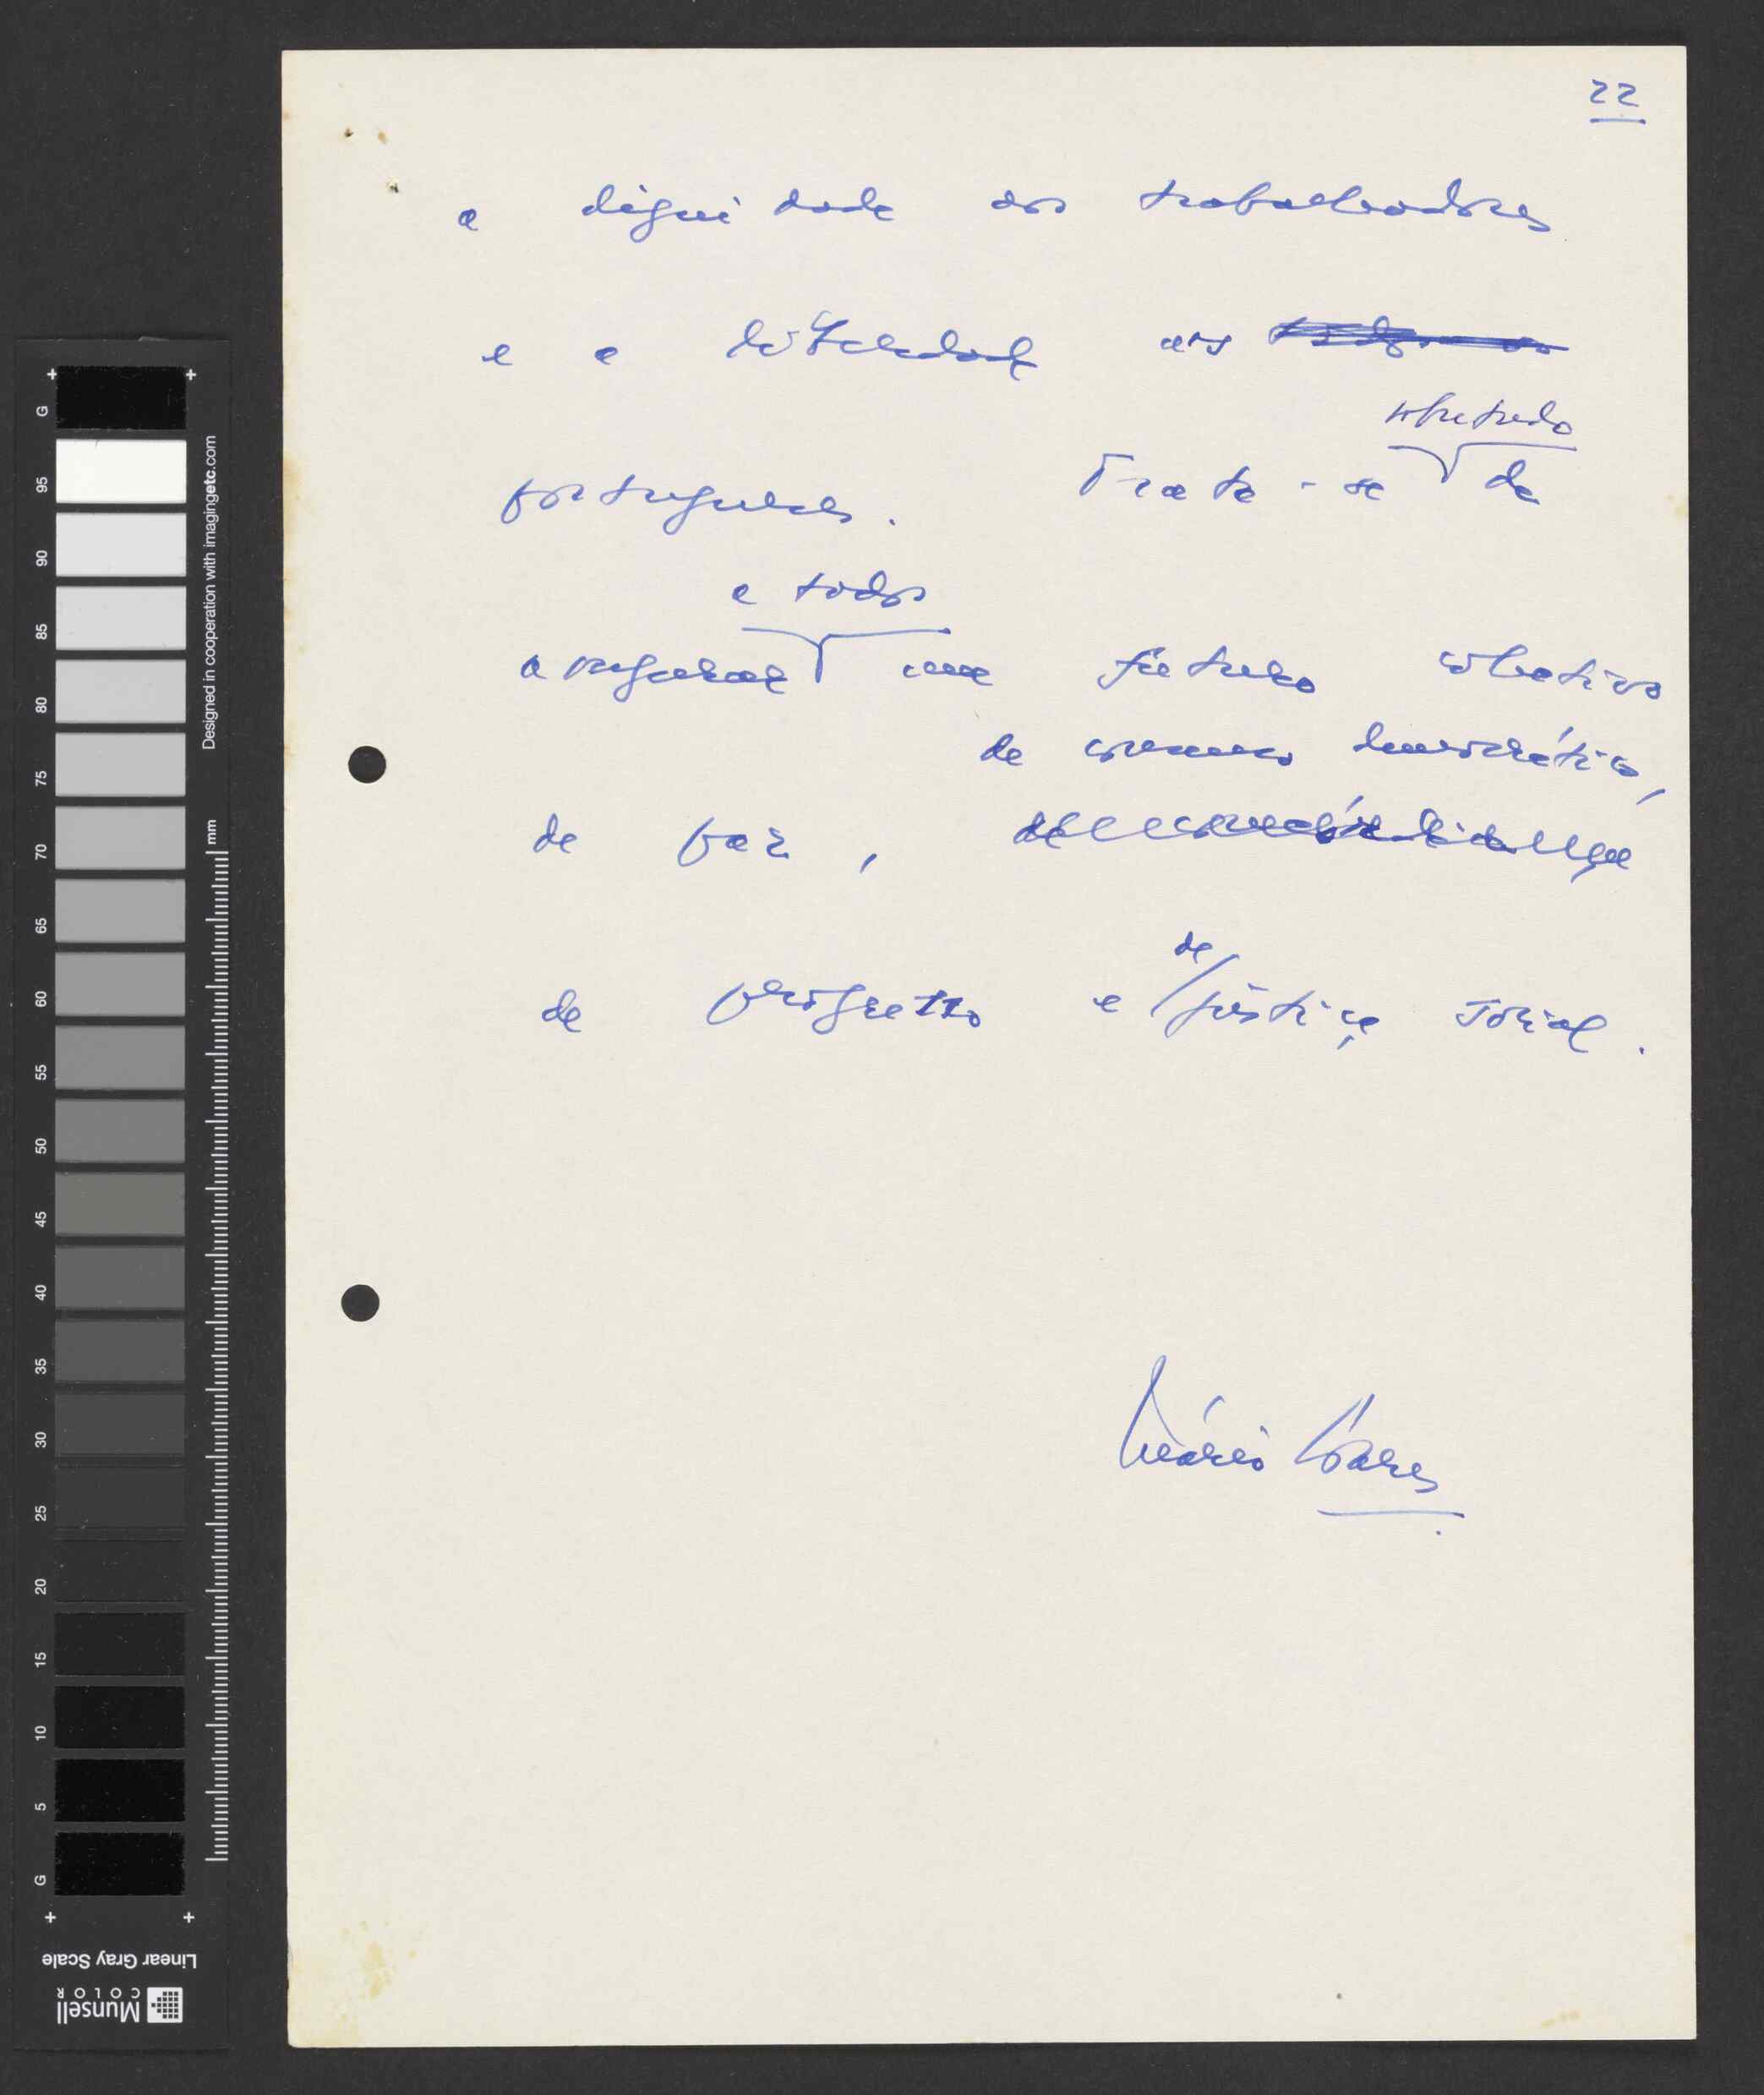 22
a dignidade dos trabalhadores
e a liberdade dos
sobretudo
portugueses. Trata-se de
a todos
assegurar um futuro colectivo
de consenso democrático,
de paz,
de
de progresso e justiça social.
Mário Soares
G
95
90
85
80
75
70
65
60
55
50
45
40
35
30
25
20
15
10
5
G
Designed in cooperation with imagingetc.com
mm
Linear Gray Scale
Munsell
COLOR